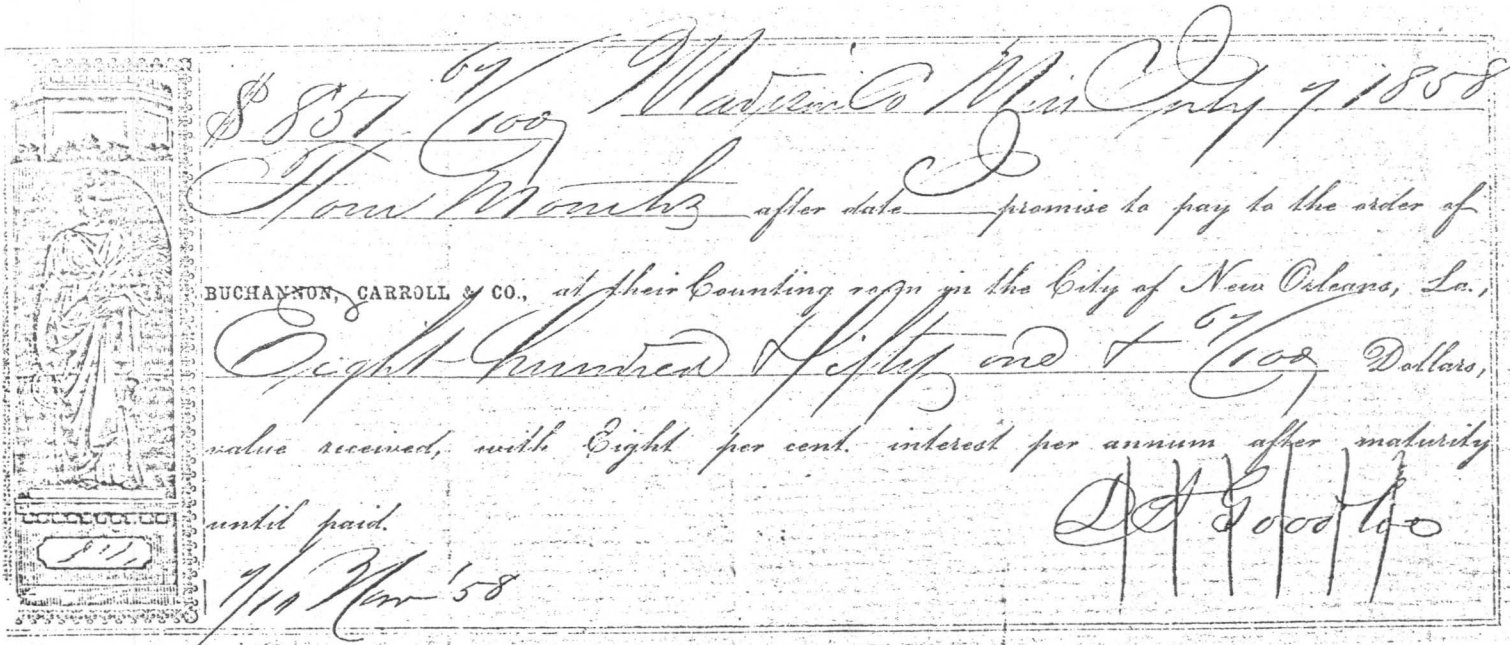 $ 851 67/100 Madison Co Miss July 7 1858
Four Months after date I promise to pay to the order of
BUCHANNON, CARROLL & CO., at their Counting room in the City of New Orleans, La.,
Eight hundred & fifty one & 67/100 Dollars,
value received, with Eight per cent. interest per annum after maturity
until paid.
D S Goodloe
7/10 Nov '58